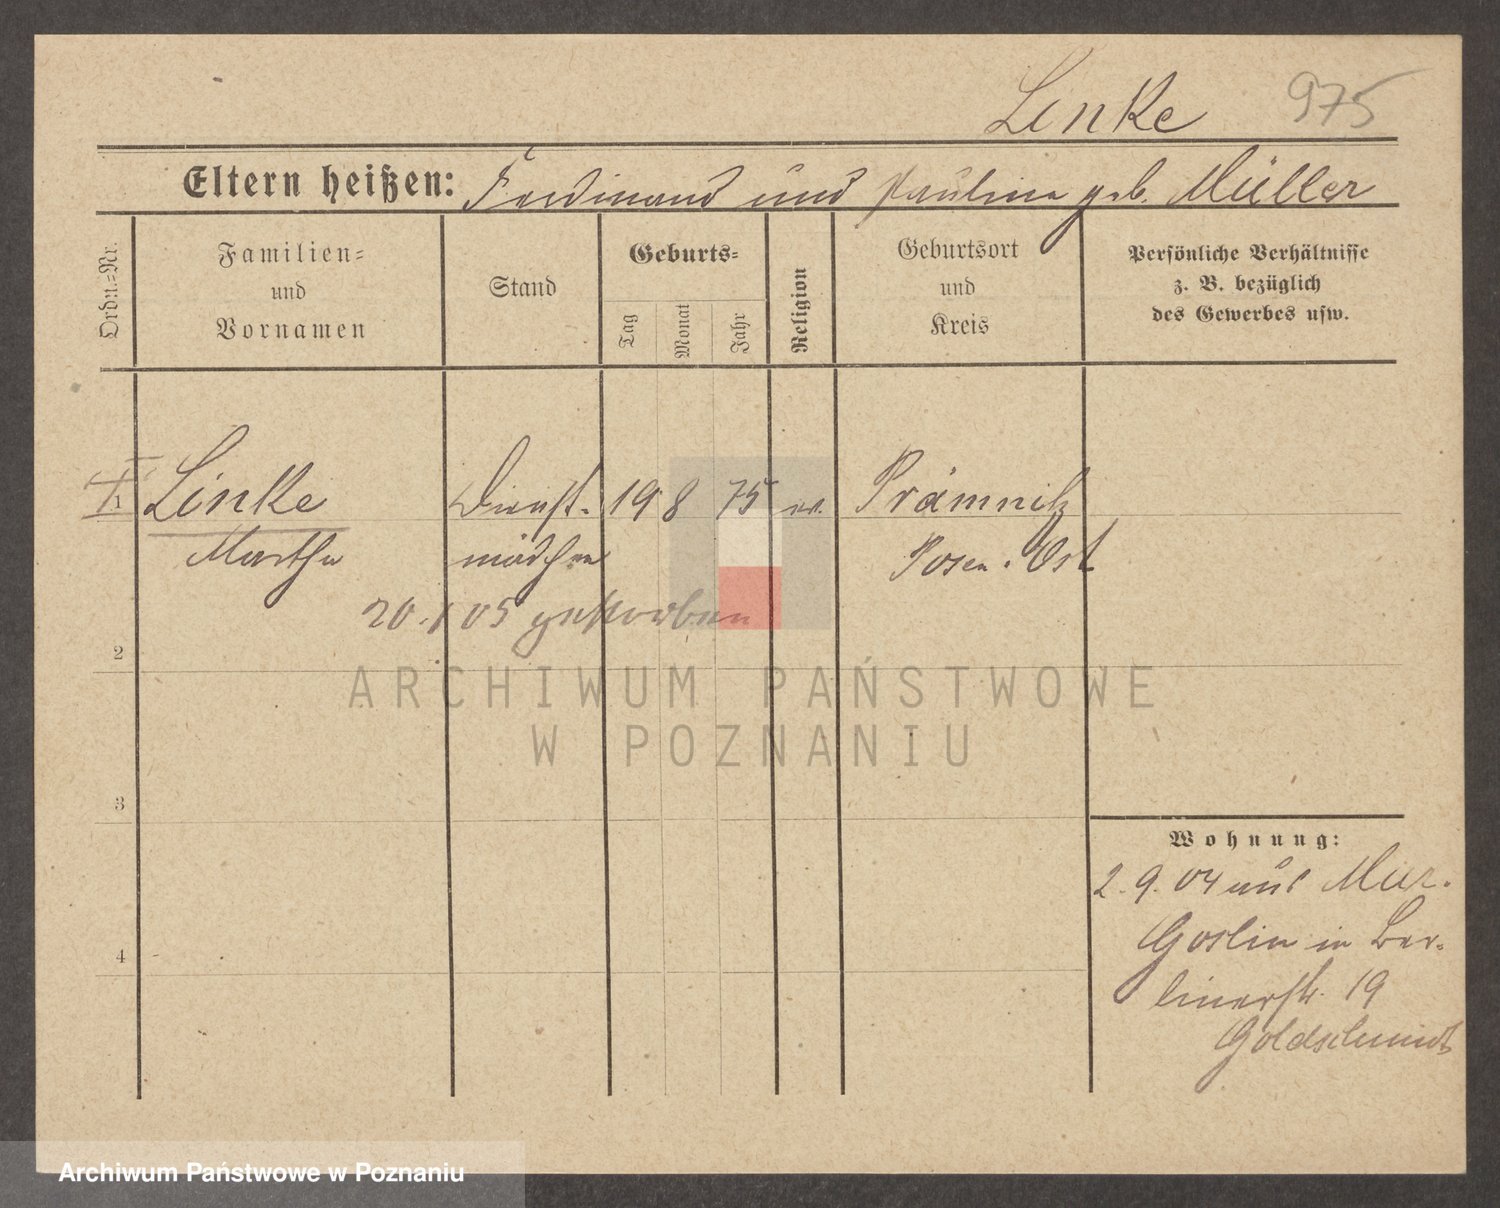 Linke 975
Eltern heißen: Ferdinand und Pauline geb. Müller
Ordn.=Nr.
Familien=
und
Vornamen
Stand
Geburts=
Tag
Monat
Jahr
Religion
Geburtsort
und
Kreis
Persönliche Verhältnisse
z. B. bezüglich
des Gewerbes usw.
1 Linke Dienst- 19 8 75 ev. Prämnitz
Martha mädchen Posen. Ost
20.1 05 gestorben
2
ARCHIWUM PAŃSTWOWE
W POZNANIU
3
Wohnung:
2. 9. 04 aus Mur.
Goslin in Ber-
4
linerstr. 19
Goldschmidt
Archiwum Państwowe w Poznaniu